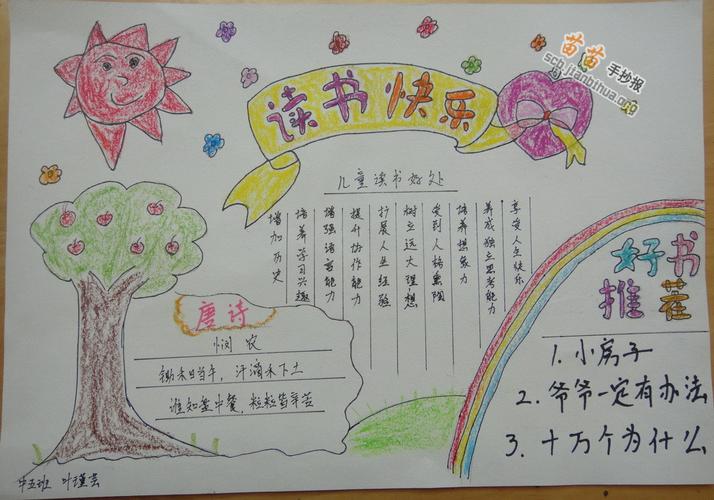 苗苗手抄报
sc.jianbihua.org
读书快乐
儿童读书好处
增加历史
培养学习兴趣
增强语言能力
提升协作能力
扩展人生经验
树立远大理想
受到人格熏陶
培养想象力
养成独立思考能力
享受人生快乐
唐诗
悯农
锄禾日当午，汗滴禾下土
谁知盘中餐，粒粒皆辛苦
好书
推荐
1. 小房子
2. 爷爷一定有办法
3. 十万个为什么
中五班 叶瑾芸